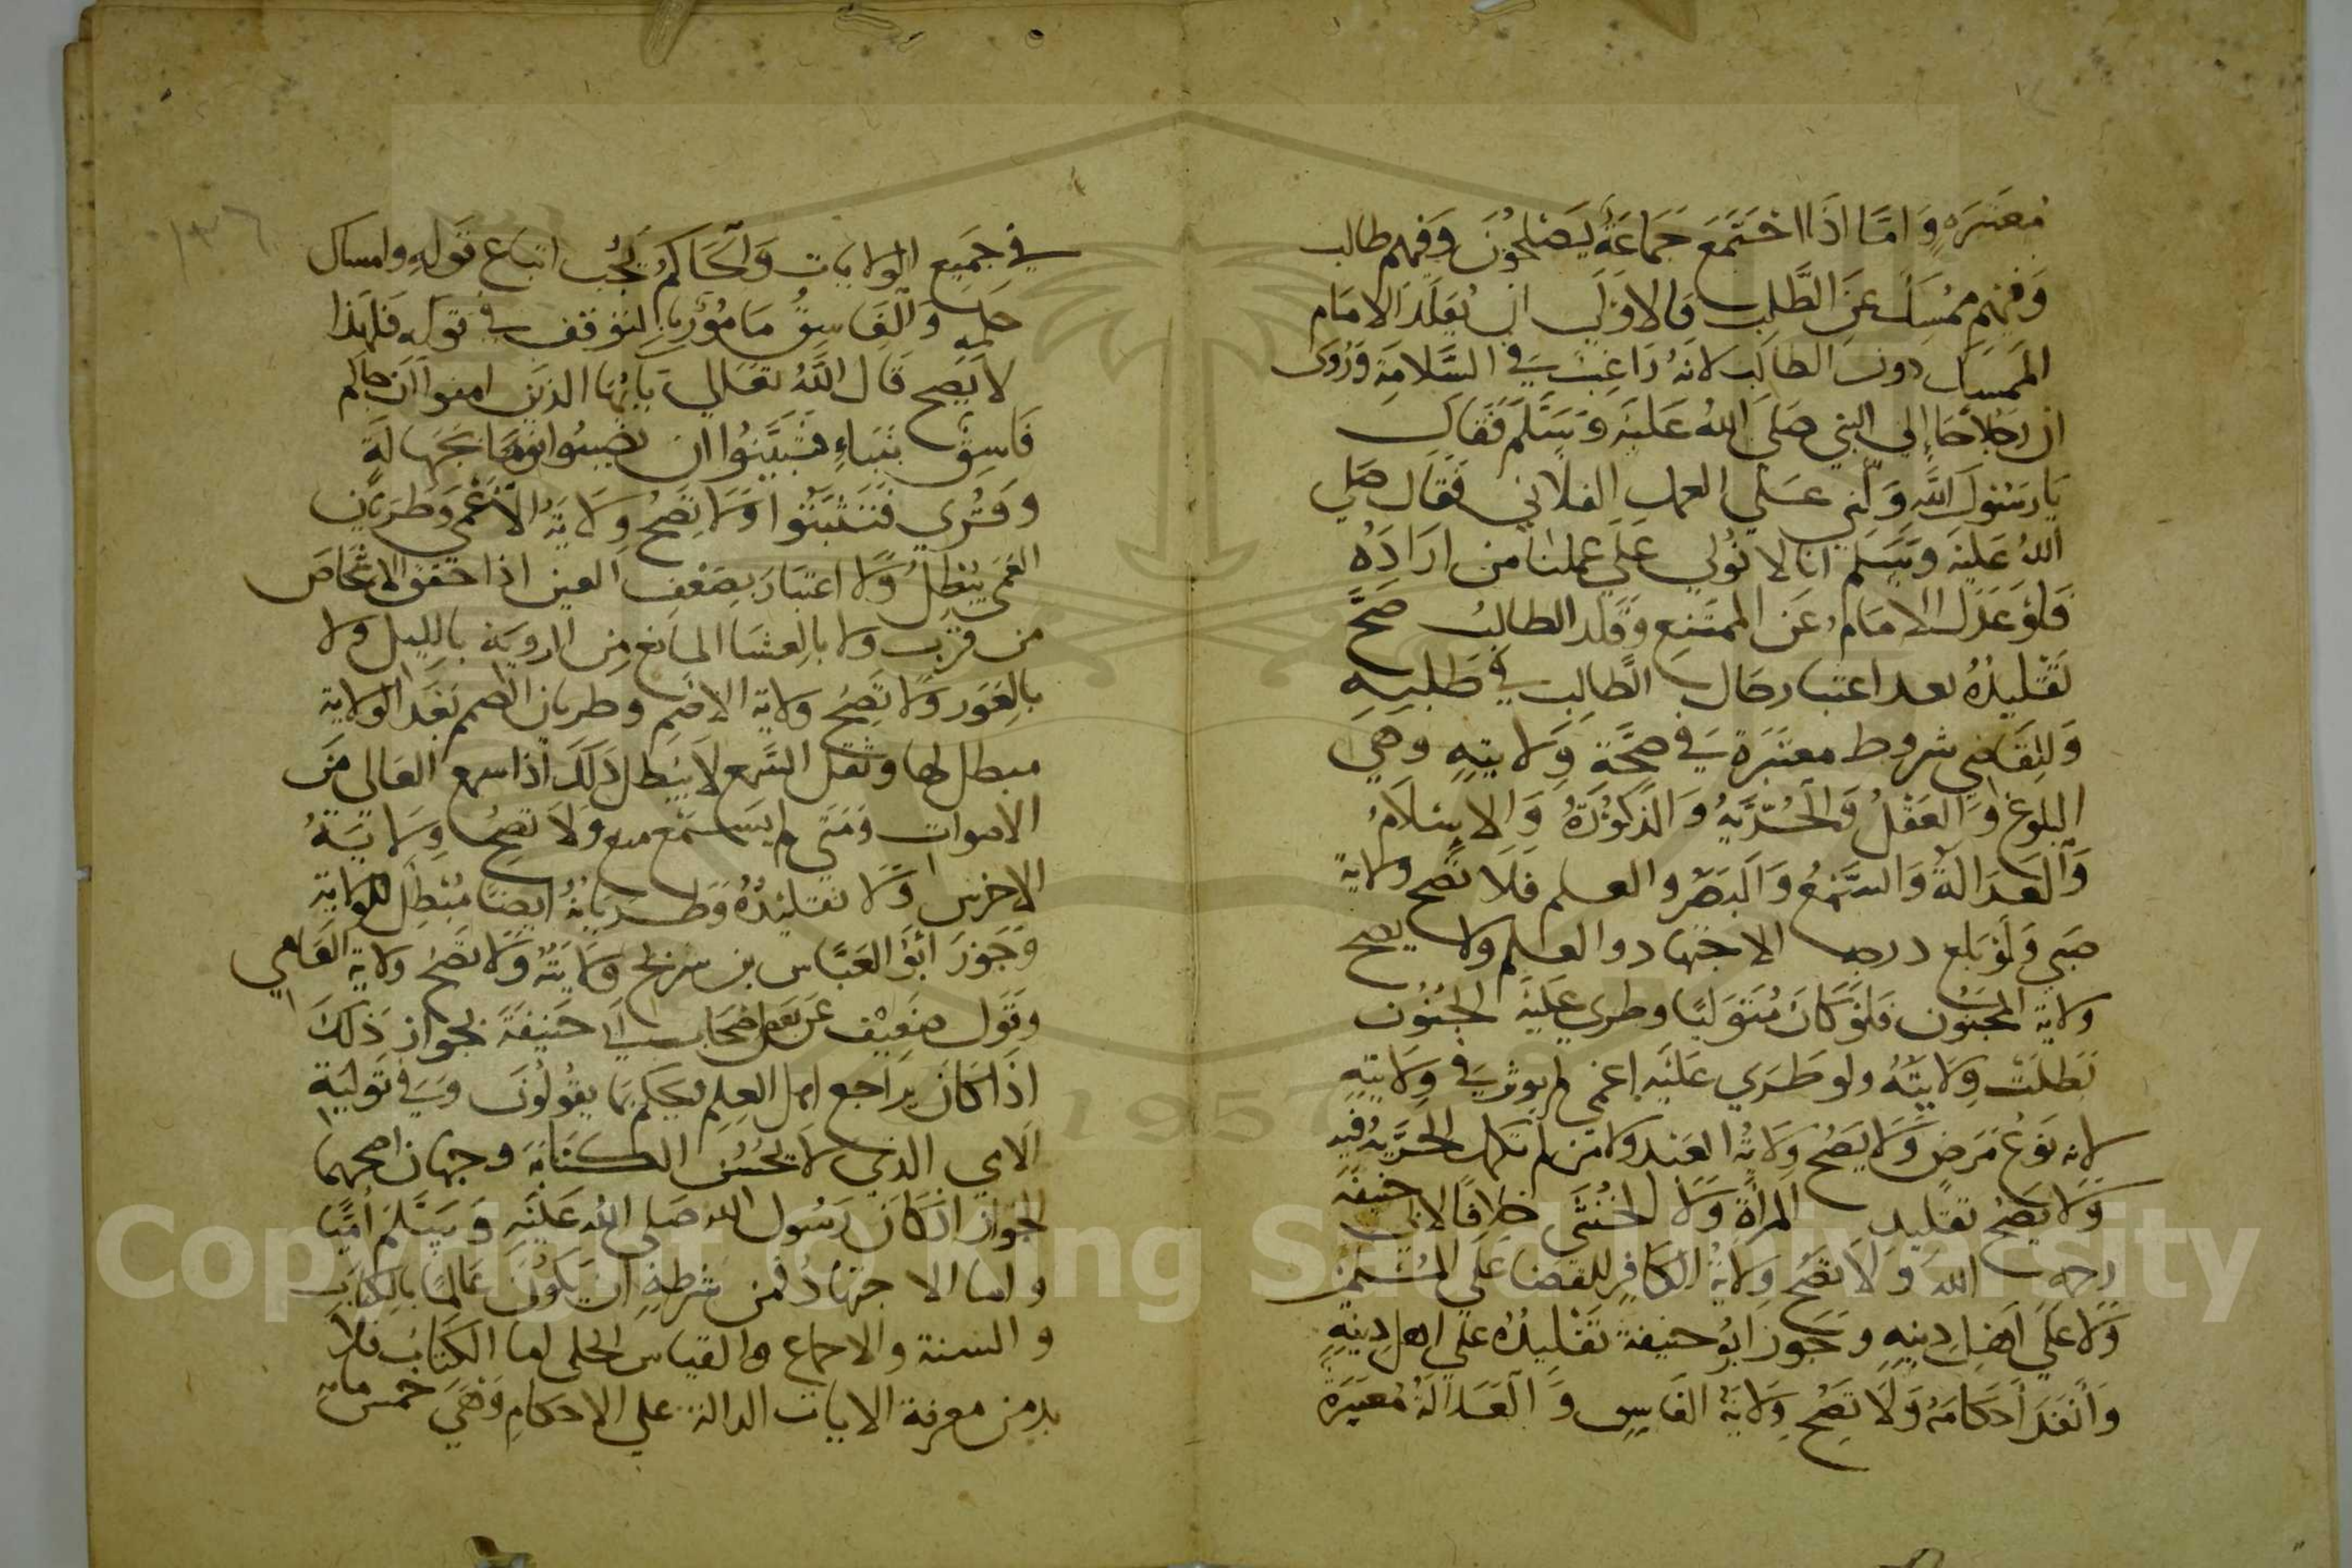 معتبره واما اذا اجتمع جماعة يصلحون وفيهم طالب
وفيهم ممسك عن الطلب فالاولي ان يقلد الامام
الممسك دون الطالب لانه راغب في السلامة وروى
ان رجلا جا إلي النبي صلى الله عليه وسلم فقال
يا رسول الله ولني علي العمل الفلاني فقال صلي
الله عليه وسلم انا لا نولي علي عملنا من اراده
فلو عدل الامام عن الممتنع وقلد الطالب صح
تقليده بعد اعتبار حال الطالب في طلبه
وللقاضي شروط معتبرة في صحة ولايته وهي
البلوغ والعقل والحرية والذكورة والاسلام
والعدالة والسمع والبصر والعلم فلا تصح ولاية
صبي ولو بلغ درجه الاجتهاد والعلم ولا يصح
ولاية المجنون فلو كان متوليا وطري عليه الجنون
بطلت ولايته ولو طري عليه إغمي لم يوثر في ولايته
لانه نوع مرض ولا يصح ولاية العبد ولا من لم تكمل الحرية فيه
ولا يصح تقليد المراة ولا الخنثى خلافا لابي حنيفة
رحمه الله ولا تصح ولاية الكافر للقضا علي المسلمين
ولا علي اهل دينه وجوز ابو حنيفة تقليده علي اهل دينه
وانفذ احكامه ولا تصح ولاية الفاسق والعدالة معتبرة
في جميع الولايات والحاكم يجب اتباع قوله وامساك
حكمه والفاسق مامور بالتوقف في قوله فلهذا
لا يصح قال الله تعالي يايها الذين امنوا ان جاكم
فاسق بنباء فتبينوا ان تصيبوا قوما بجهالة
وقري فتثبتوا ولا تصح ولاية الاعمى وطريان
العمى يبطل ولا اعتبار بضعف العين اذا حقق الاشخاص
من قرب ولا بالعشا المانع من الروية بالليل ولا
بالعور ولا تصح ولاية الاصم وطريان الصمم بعد الولاية
مبطل لها وثقل السمع لا يبطل ذلك اذا سمع العالي من
الاصوات ومتي لم يسمع منع ولا تصح ولاية
الاخرس ولا تقليده وطريانه ايضا مبطل للولاية
وجوز ابو العباس بن سريج ولايته ولا تصح ولاية العامي
وقول ضعيف عن بعض اصحاب ابي حنيفة بجواز ذلك
اذا كان يراجع اهل العلم فيحكم بما يقولون وفي تولية
الامي الذي لا يحسن الكتابة وجهان اصحهما
الجواز اذ كان رسول الله صلى الله عليه وسلم اميا
واما الاجتهاد فمن شرطه ان يكون عالما بالكتاب
والسنة والاجماع والقياس الجلي اما الكتاب فلا
بد من معرفة الايات الدالة علي الاحكام وهي خمس ماية
١٣٦
Copyright © King Saud University
1957